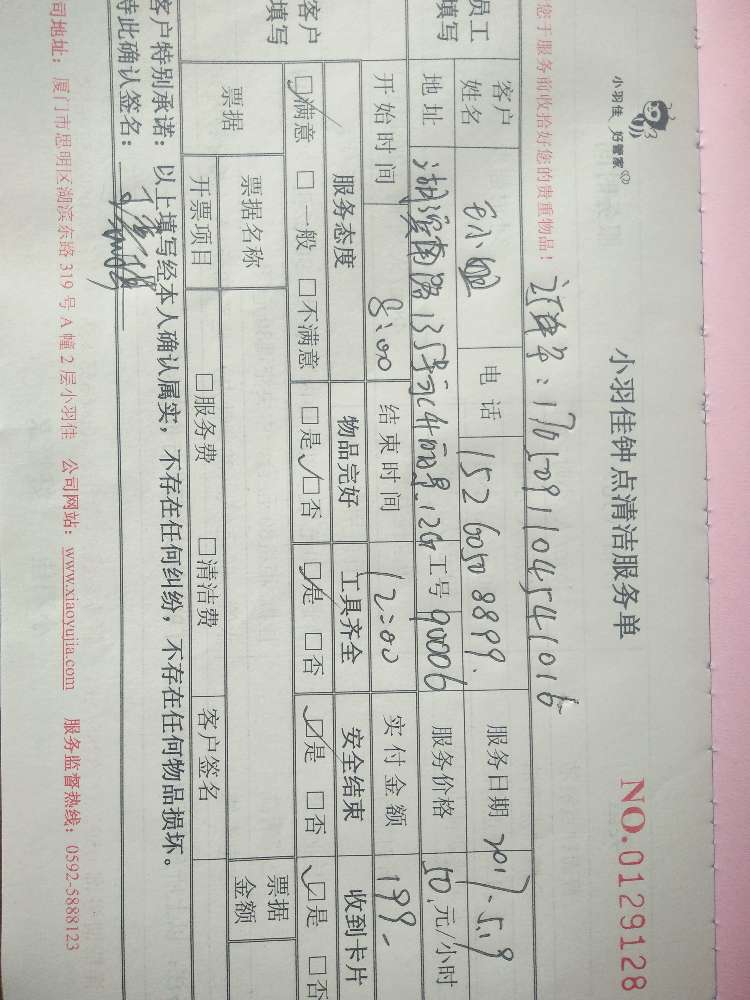 小羽佳 好管家
小羽佳钟点清洁服务单
NO.0129128
您于服务前收拾好您的贵重物品!
1705091104541016
员工填写
客户姓名
电话 15260508899.
服务日期 2017.5.19
地址
湖滨南路
工号 90006
服务价格 50.元/小时
开始时间 8:00
结束时间 12:00
实付金额 199-
客户填写
服务态度 物品完好 工具齐全 安全结束 收到卡片
□满意 □一般 □不满意 □是 □否 □是 □否 □是 □否 □是 □否
票据
票据名称
票据金额
开票项目 □服务费 □清洁费 客户签名
客户特别承诺:以上填写经本人确认属实,不存在任何纠纷,不存在任何物品损坏。
特此确认签名:
司地址: 厦门市思明区湖滨东路 319 号 A 幢 2 层小羽佳 公司网站: www.xiaoyujia.com 服务监督热线: 0592-5888123